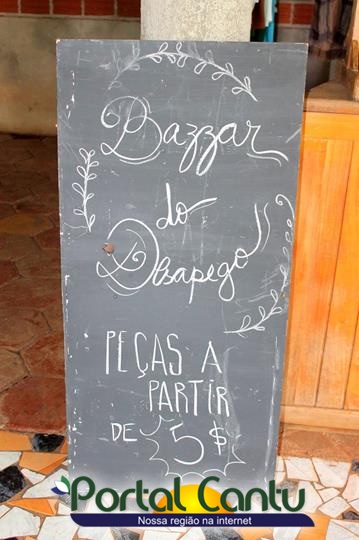 Bazzar
do
Desapego
PEÇAS A
PARTIR
DE 5$
Portal Cantu
Nossa região na internet